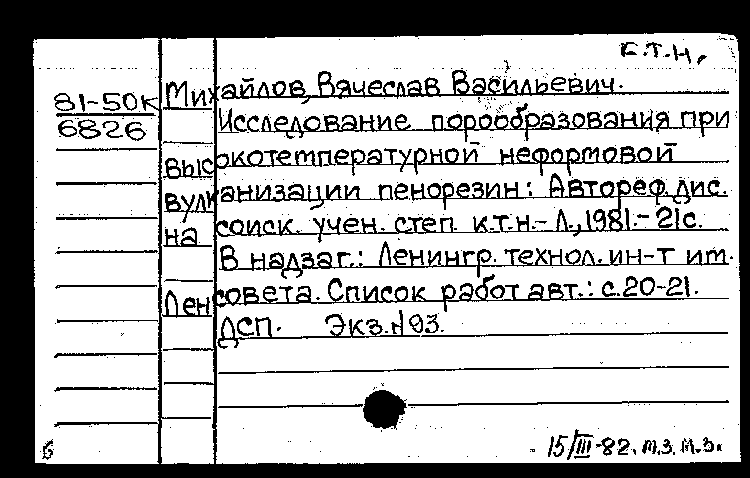 к.т.н.
81-50к Михайлов, Вячеслав Васильевич.
6826 Исследование порообразования при
высокотемпературной неформовой
вулканизации пенорезин: Автореф. дис.
на соиск. учен. степ. к.т.н.- Л., 1981.- 21с.
В надзаг.: Ленингр. технол. ин-т им.
Ленсовета. Список работ авт.: с.20-21.
ДСП. Экз.N93.
15/III-82. м.з. м.з.